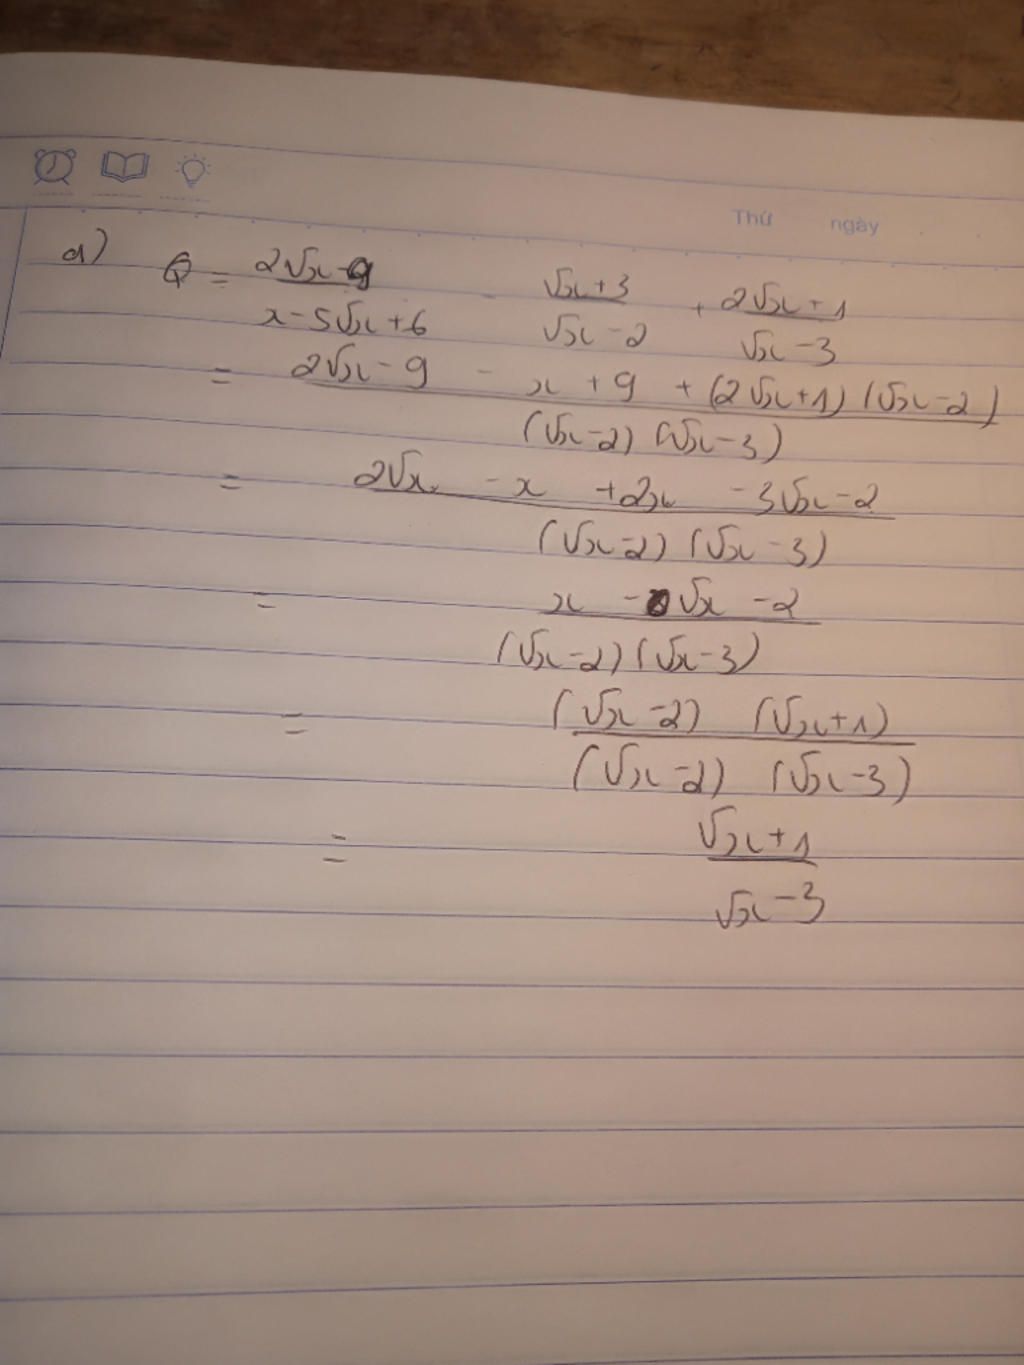 Thứ ngày
a) Q = 2√x - 9 / x - 5√x + 6 - √x + 3 / √x - 2 + 2√x + 1 / √x - 3
= 2√x - 9 - x + 9 + (2√x + 1) (√x - 2) / (√x - 2) (√x - 3)
= 2√x - x + 2x - 3√x - 2 / (√x - 2) (√x - 3)
= x - √x - 2 / (√x - 2) (√x - 3)
= (√x - 2) (√x + 1) / (√x - 2) (√x - 3)
= √x + 1 / √x - 3